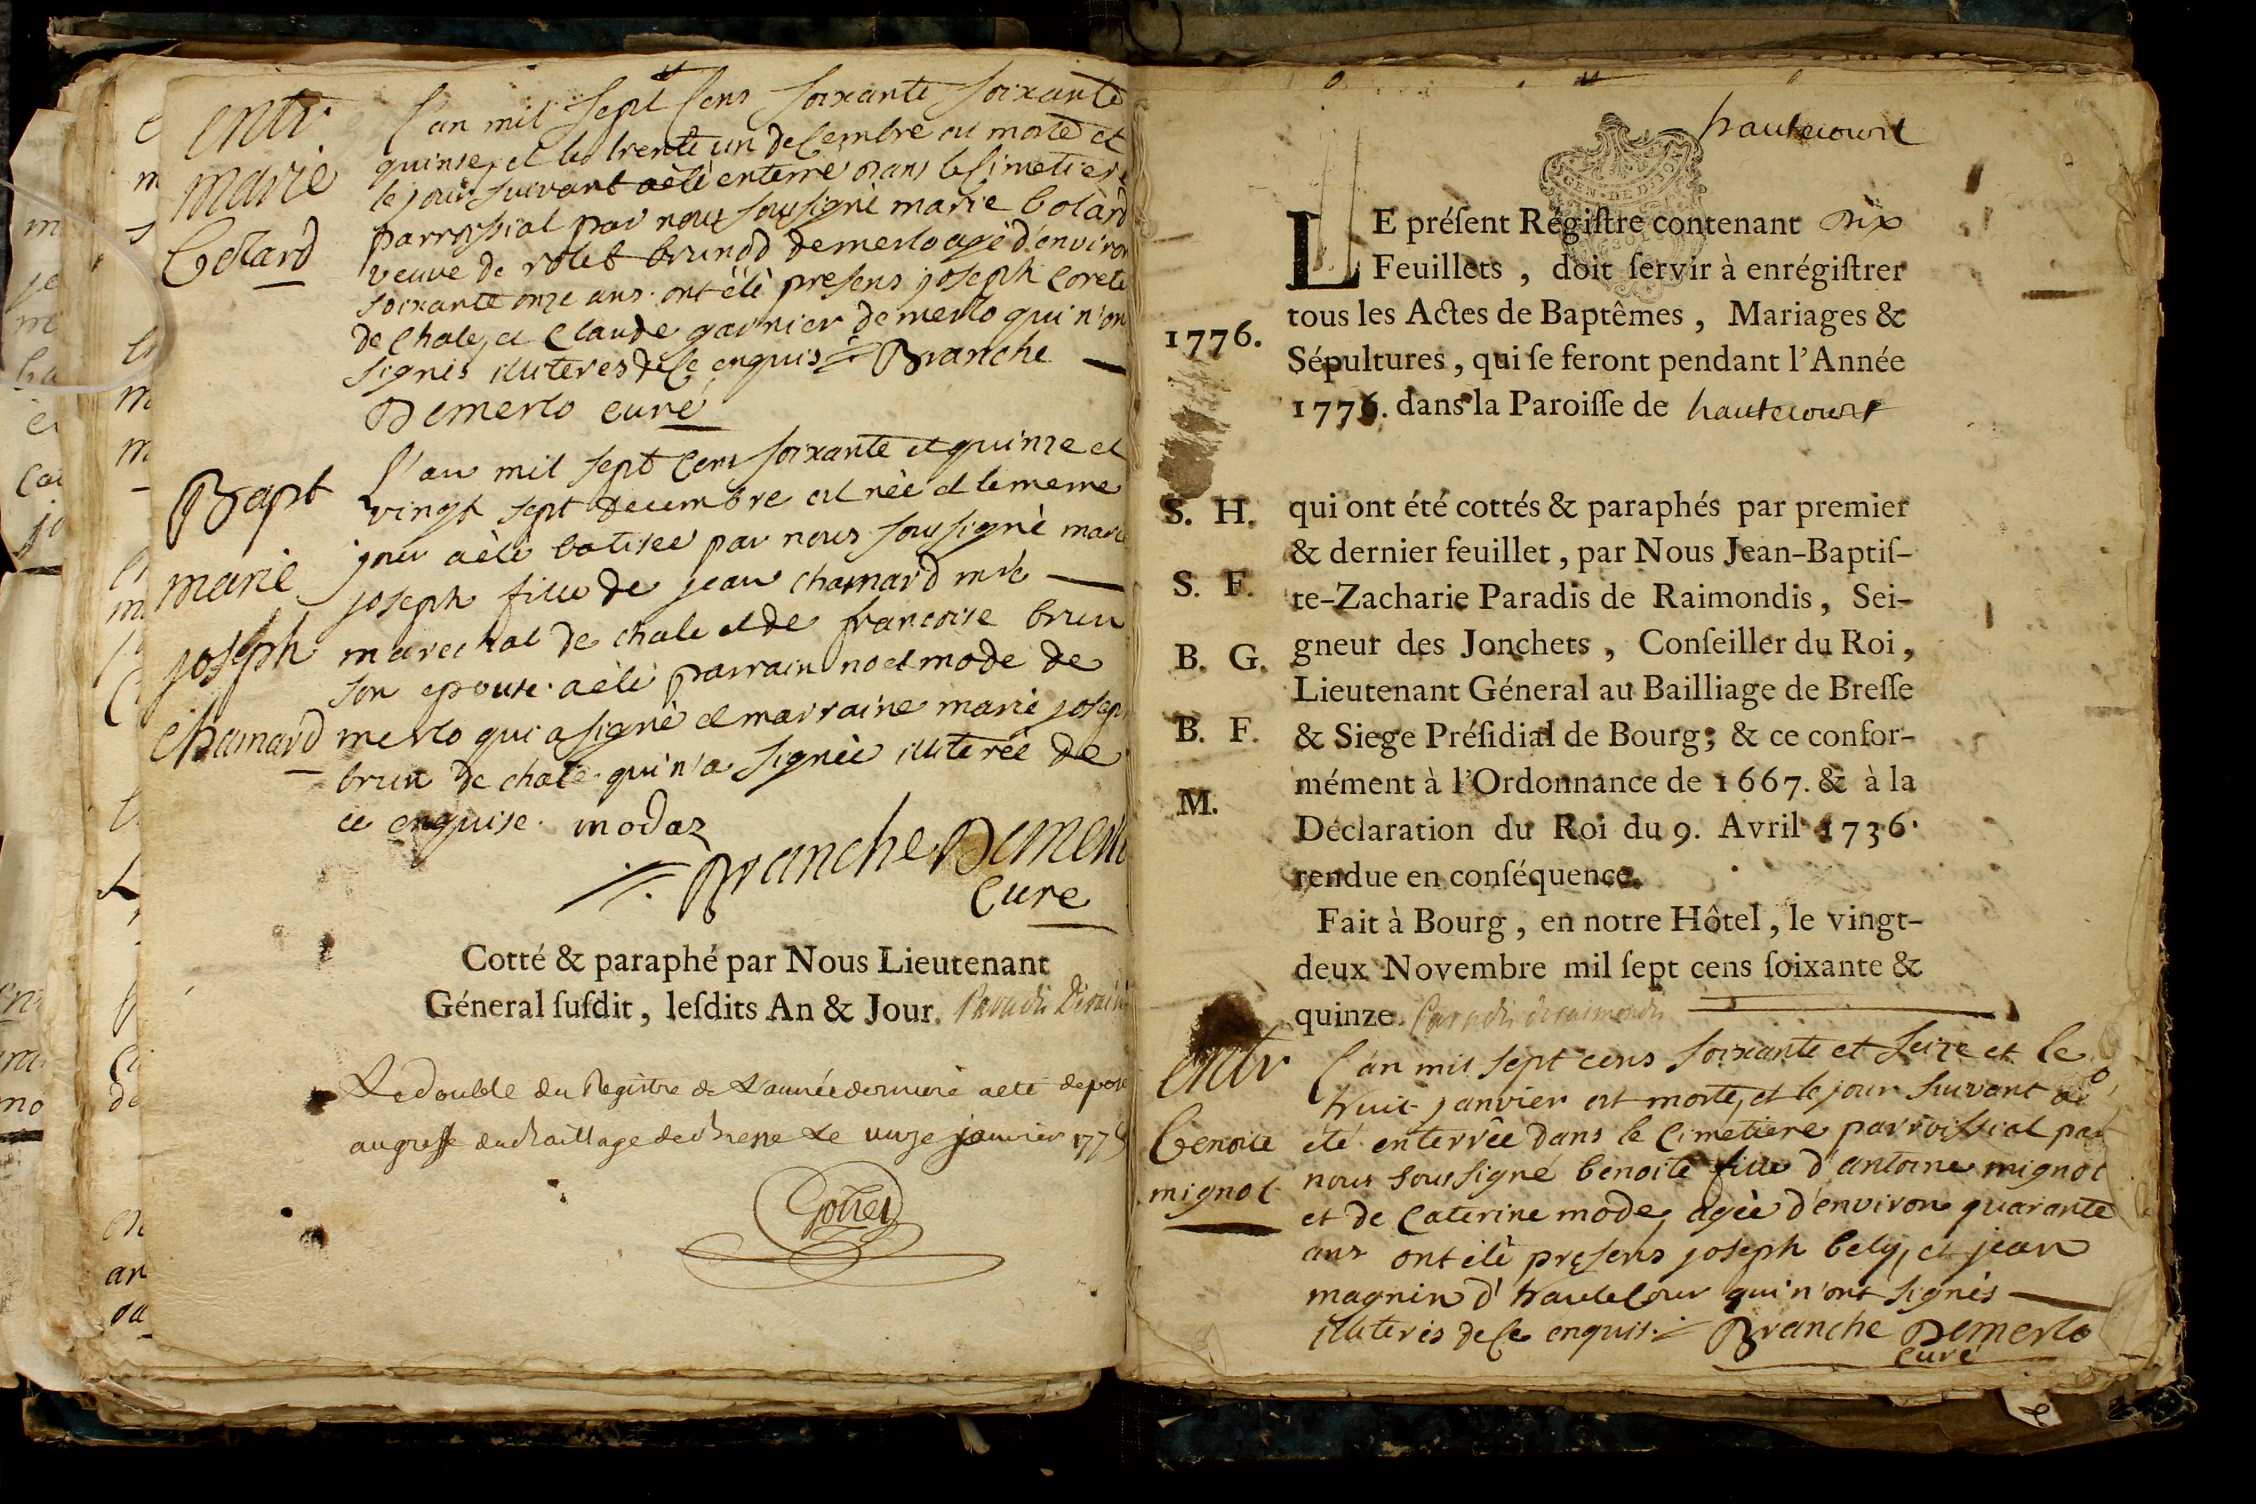 entr.
marie
Colard
l'an mil sept Cens soixante soixante
quinse, et les trente un deCembre est morte et
le jour suivant aèté enterré dans le simetiere
parroissial par nous sousigné marie Colard
veuve de rolet brunod demerlo agé d'environ
soixante onze ans. ont été presens joseph
de Chale, et Claude garnier de merlo qui n'on
signés illiteres de Ce enquis Branche
Demerlo curé
Bapt
marie
joseph
Chamard
l'an mil sept Cens soixante et quinze et
vingt sept decembre est née et le meme
jour aèté batisée par nous sousigné marie
joseph fille de jean chamard
marechal de chale et de francoise brun
son epouse. aèté parrain noel mode de
merlo qui a signé et marraine marie josep
brun de chale. qui n'a signée illiterée de
ce enquise. modaz
Branche Demerlo
Cure
Cotté & paraphé par Nous Lieutenant
Géneral susdit, lesdits An & Jour. Paradis Deraim
Le double du Registre de L'année derniere aeté deposé
au greffe du bailliage de bresse Le unze janvier 177
hautecourt
GEN. DE DIJON
LE présent Régistre contenant Dix
Feuillets, doit servir à enrégistrer
tous les Actes de Baptêmes, Mariages &
1776.
Sépultures, qui se feront pendant l'Année
1776. dans la Paroisse de hautecourt
S. H.
qui ont été cottés & paraphés par premier
& dernier feuillet, par Nous Jean-Baptis-
S. F.
te-Zacharie Paradis de Raimondis, Sei-
gneur des Jonchets, Conseiller du Roi,
B. G.
Lieutenant Géneral au Bailliage de Bresse
B. F.
& Siege Présidial de Bourg; & ce confor-
mément à l'Ordonnance de 1667. & à la
M.
Déclaration du Roi du 9. Avril 1736.
rendue en conséquence.
Fait à Bourg, en notre Hôtel, le vingt-
deux Novembre mil sept cens soixante &
quinze. Paradis deraimondis
entr
benoite
mignot
l'an mil sept cens soixante et seize et le
huit janvier est morte, et le jour suivant a
été enterrée dans le Cimetiere parroissial par
nous soussigné benoite fille d'antoine mignot
et de Caterine mode, agée d'environ quarante
ans ont été presens joseph bely, et jean
magnin d'hauteCour qui n'ont signés
illiterés de Ce enquis. Branche Demerlo
curé